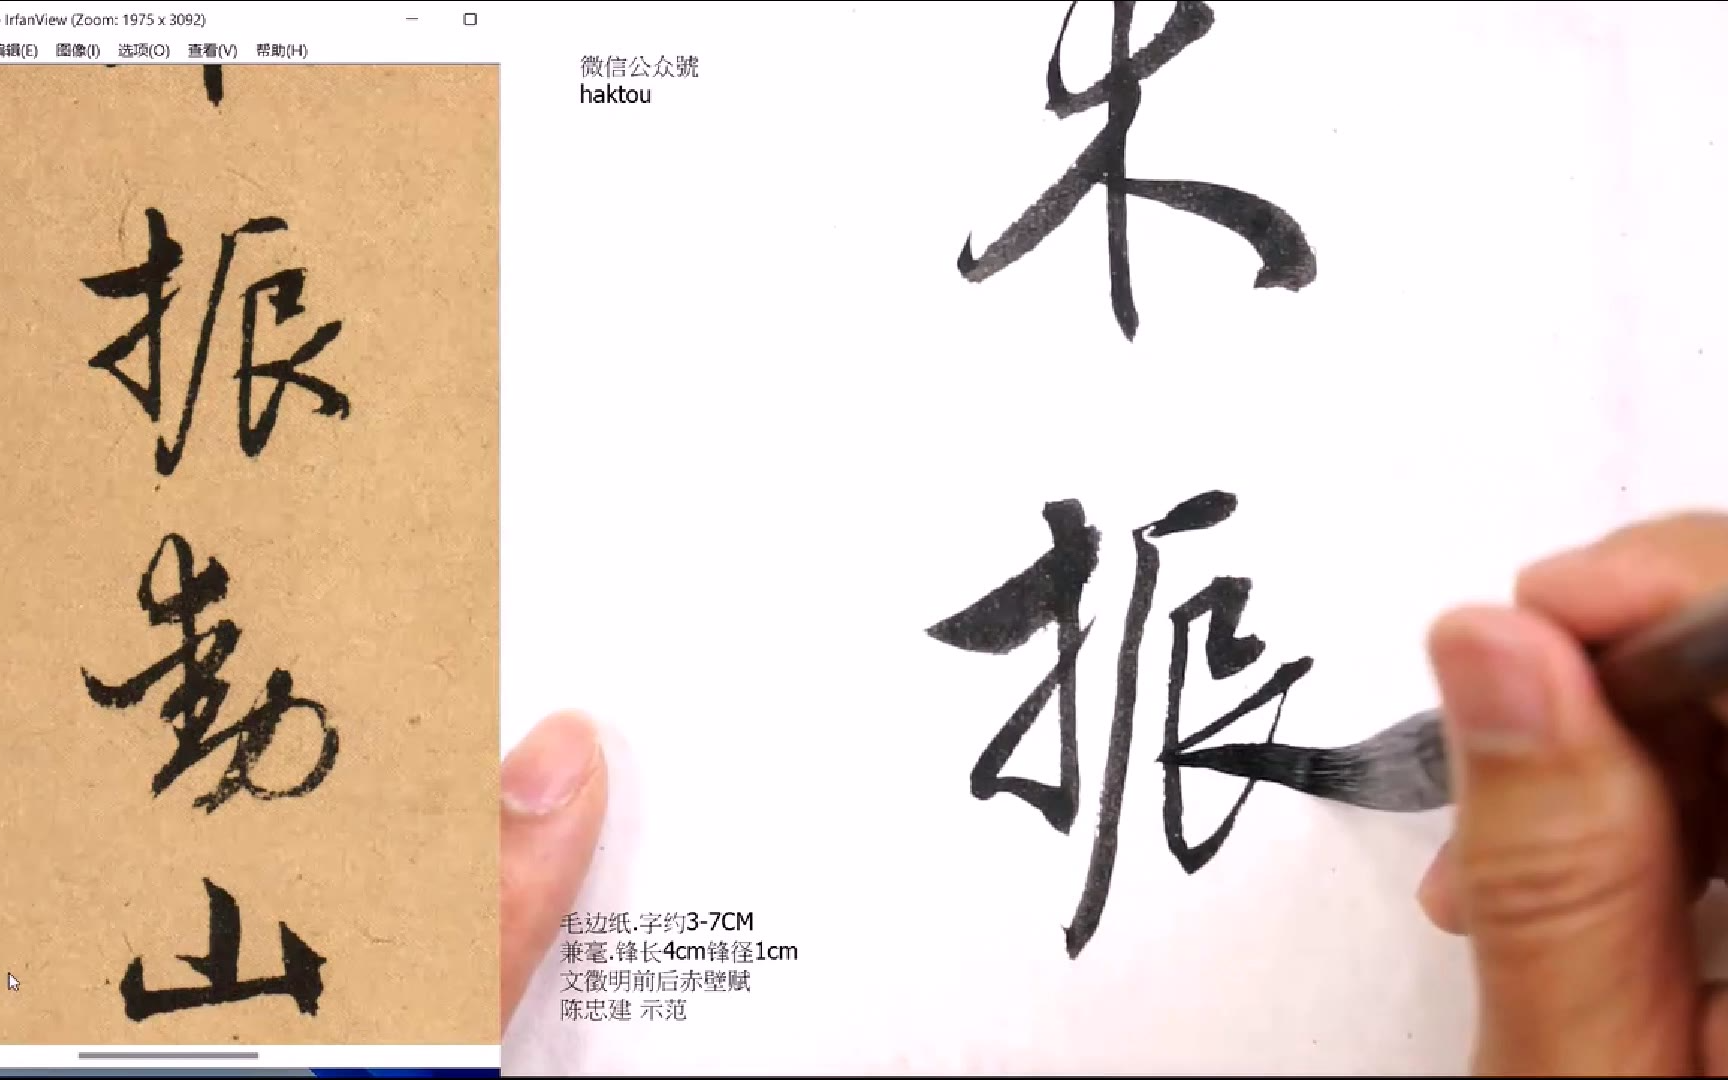 IrfanView (Zoom: 1975 x 3092)
编辑(E) 图像(I) 选项(O) 查看(V) 帮助(H)
振
動
山
微信公众號
haktou
木
振
毛边纸.字约3-7CM
兼毫.锋长4cm锋径1cm
文徵明前后赤壁赋
陈忠建 示范